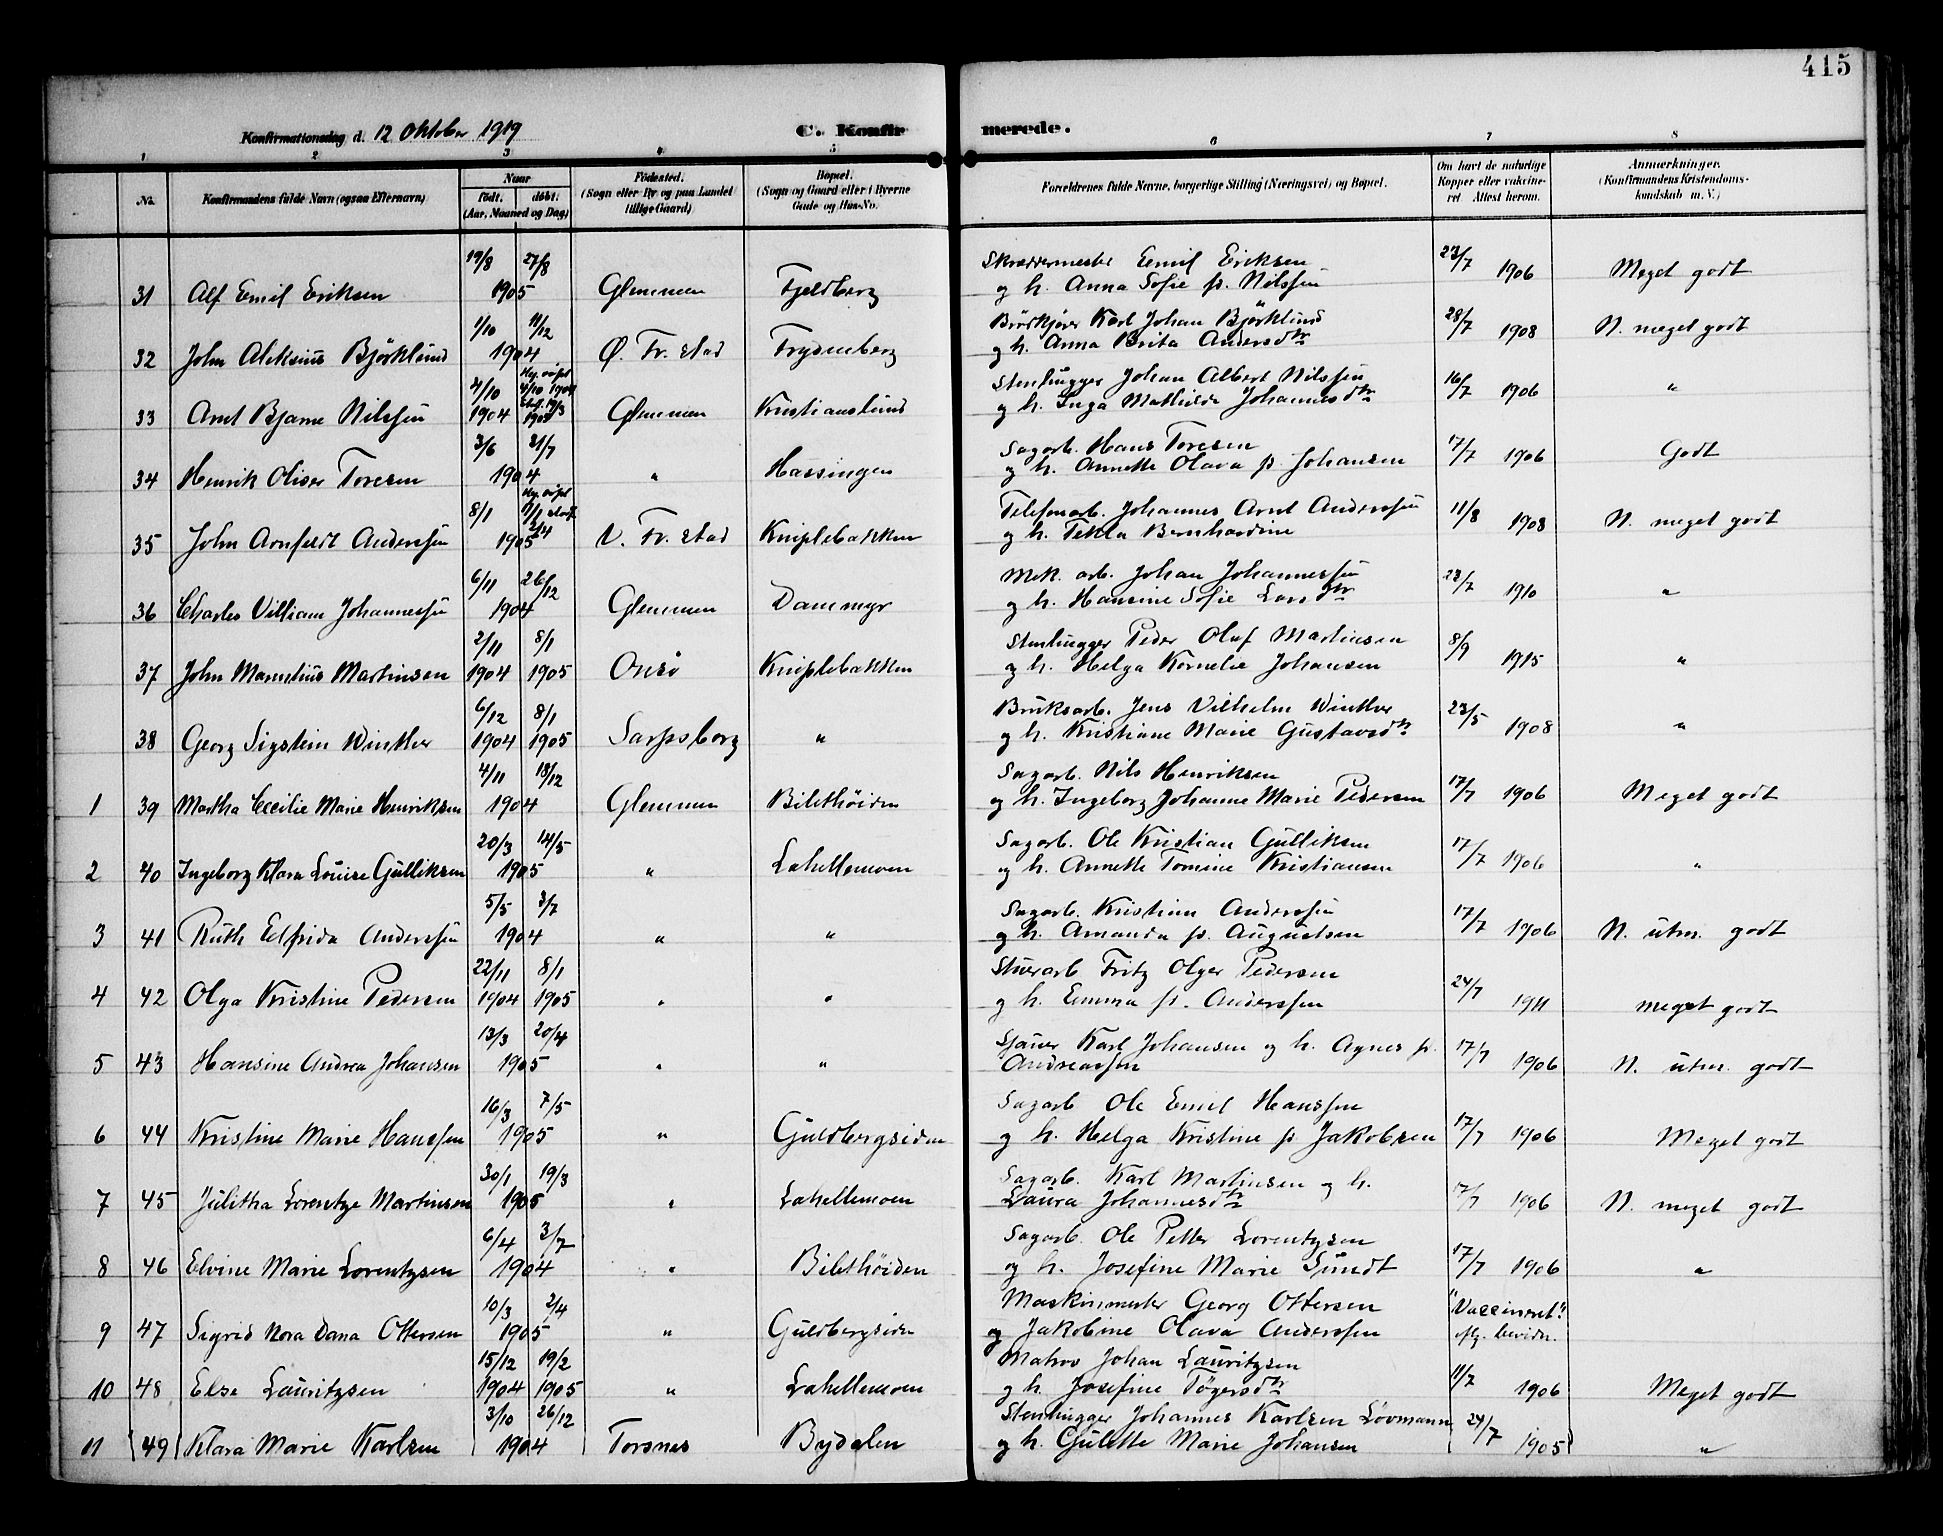 415
Konfirmationsdag d. 12 Oktober 1919
C. Konfir merede.
1 2 3 4 5 6 7 8
No.
Konfirmandens fulde Navn (ogsaa Efternavn)
Naar
født. døbt.
(Aar, Maaned og Dag)
Fødested.
(Sogn eller By og paa Landet
tillige Gaard)
Bopæl.
(Sogn og Gaard eller i Byerne
Gade og Hus-No.
Forældrenes fulde Navne, borgerlige Stilling (Næringsvei) og Bopæl.
Om havt de naturlige
Kopper eller vakcine-
ret Attest herom.
Anmærkninger.
(Konfirmandens Kristendoms-
kundskab m. V.)
19/8 27/8 Skræddermester Eemil Eriksen 23/7
31 Alf Emil Eriksen 1905 Glemmen Fjeldberg og h. Anna Sofie f. Nilssen 1906 Meget godt
1/10 11/12 Brödkjører Karl Johan Björklund 28/7
32 John Aleksius Björklund 1904 Ø. Fr.stad Frydenberg og h. Anna Brita Andersdtr 1908 N. meget godt
4/10 4/10 1904 Stenhugger Johan Albert Nilssen 16/7
33 Arnt Bjarne Nilssen 1904 19/3 1905 Glemmen Kristianslund og h. Inga Mathilde Johannesdtr 1906 "
3/6 31/7 Sagarb. Hans Toresen 17/7
34 Henrik Oliser Toresen 1904 " Hassingen og h. Annette Olava f. Johansen 1906 Godt
8/1 Telefonarb. Johannes Arnt Anderssen 11/8
35 John Arnfeldt Anderssen 1905 2/4 V. Fr.stad Kniplebakken og h. Tekla Bernhardine 1908 N. meget godt
6/11 26/12 Mek. arb. Johan Johannessen 23/7
36 Charles Villiam Johannessen 1904 Glemmen Dammyr og h. Hansine Sofie Larsdtr 1910 "
2/11 8/1 Stenhugger Peder Oluf Martinsen 8/9
37 John Mauritius Martinsen 1904 1905 Onsö Kniplebakken og h. Helga Kornelie Johansen 1915 "
6/12 8/1 Bruksarb. Jens Vilhelm Winther 23/5
38 Georg Sigstein Winther 1904 1905 Sarpsborg " og h. Kristiane Marie Gustavsdtr 1908 "
4/11 18/12 Sagarb. Nils Henriksen 17/7
1 39 Martha Cecilie Marie Henriksen 1904 Glemmen Bilethöiden og h. Ingeborg Johanne Marie Pedersen 1906 Meget godt
20/3 14/5 Sagarb. Ole Kristian Gulliksen 17/7
2 40 Ingeborg Klara Louise Gulliksen 1905 " Lahellemoen og h. Annette Tomine Kristiansen 1906 "
5/5 3/7 Sagarb. Kristian Anderssen 17/7
3 41 Ruth Elfrida Anderssen 1904 " " og h. Amanda f. Augustsen 1906 N. utm. godt
22/11 8/1 Stuerarb Fritz Olger Pedersen 24/7
4 42 Olga Kristine Pedersen 1904 1905 " " og h. Emma f. Anderssen 1911 meget godt
13/3 20/4 Sjauer Karl Johansen og h. Agnes f. 17/7
5 43 Hansine Andrea Johansen 1905 " " Andreassen 1906 N. utm. godt
16/3 7/5 Sagarb Ole Emil Hanssen 17/7
6 44 Kristine Marie Hanssen 1905 " Guldbergsiden og h. Helga Kristine f Jakobsen 1906 Meget godt
30/1 19/3 Sagarb. Karl Martinsen og h. 17/7
7 45 Julitha Lorentze Martinsen 1905 " Lahellemoen Laura Johannesdtr 1906 N. meget godt
6/4 3/7 Sagarb. Ole Petter Lorentzsen 17/7
8 46 Elvine Marie Lorentzsen 1904 " Bilethöiden og h. Josefine Marie Sundt 1906 "
10/3 2/4 Maskinmester Georg Ottersen "Vaccineret"
9 47 Sigrid Nora Dana Ottersen 1905 " Guldbergsiden og Jakobine Olava Anderssen
15/12 19/2 Matros Johan Lauritzsen 11/7
10 48 Else Lauritzsen 1904 1905 " Lahellemoen og h. Josefine Tögersdtr 1906 Meget godt
3/10 26/12 Stenhugger Johannes Karlsen Lövmann 24/7
11 49 Klara Marie Karlsen 1904 Torsnes Bydalen og h. Gulette Marie Johansen 1905 "